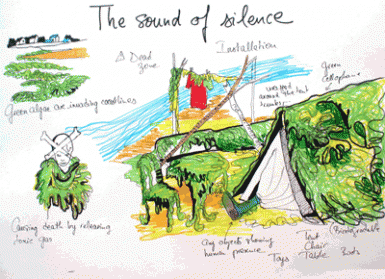 The sound of silence
A Dead
zone
Installation
Green
cellophane
wrapped
around the tent
Green algae are invading coastlines
Causing death by releasing
toxic gas
any objects showing
human presence
Toys
Tent
Chair
Table
(Biodegradable
Boots